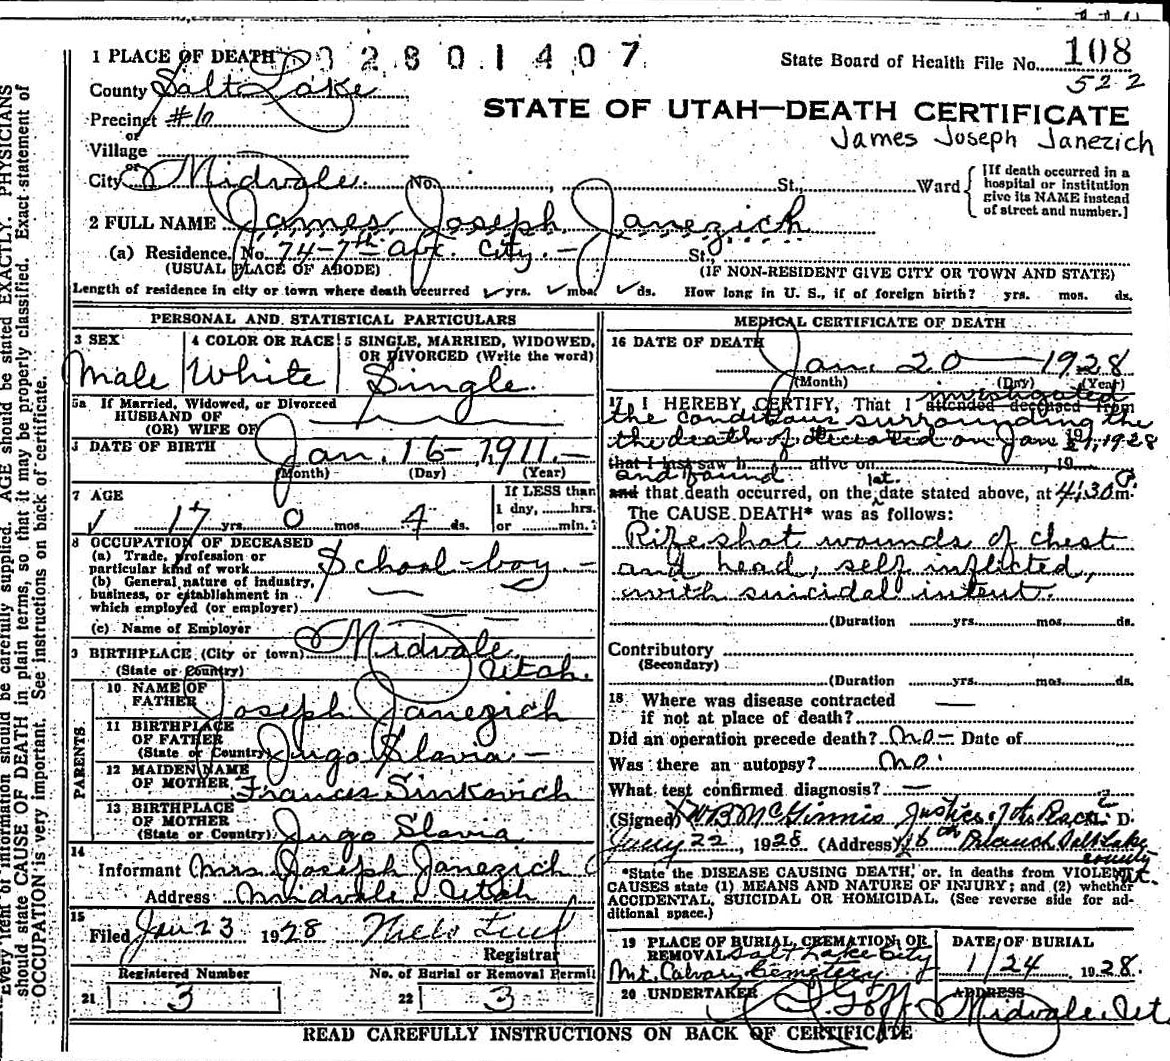 1 PLACE OF DEATH
2 8 0 1 4 0 7
State Board of Health File No. 108
522
County Salt Lake
STATE OF UTAH—DEATH CERTIFICATE
Precinct #10
James Joseph Janezich
or
Village
or
City Midvale No. St., Ward
[If death occurred in a
hospital or institution
give its NAME instead
of street and number.]
2 FULL NAME James Joseph Janezich
(a) Residence. No. 74-7th Ave. City. - St.,
(USUAL PLACE OF ABODE)
(IF NON-RESIDENT GIVE CITY OR TOWN AND STATE)
Length of residence in city or town where death occurred yrs. mos. ds. How long in U. S., if of foreign birth? yrs. mos. ds.
PERSONAL AND STATISTICAL PARTICULARS
3 SEX
Male
4 COLOR OR RACE
White
5 SINGLE, MARRIED, WIDOWED,
OR DIVORCED (Write the word)
Single.
5a If Married, Widowed, or Divorced
HUSBAND OF
(OR) WIFE OF
DATE OF BIRTH Jan. 16-1911.-
(Month) (Day) (Year)
7 AGE
17 yrs. 0 mos. 4 ds.
If LESS than
1 day, hrs.
or min.?
8 OCCUPATION OF DECEASED
(a) Trade, profession or
particular kind of work School-boy -
(b) General nature of industry,
business, or establishment in
which employed (or employer)
(c) Name of Employer
9 BIRTHPLACE (City or town) Midvale
(State or Country) Utah.
PARENTS
10 NAME OF
FATHER Joseph Janezich
11 BIRTHPLACE
OF FATHER
(State or Country) Jugo Slavia -
12 MAIDEN NAME
OF MOTHER Frances Sinkovich
13 BIRTHPLACE
OF MOTHER
(State or Country) Jugo Slavia
14
Informant Mrs Joseph Janezich
Address Midvale Utah
15
Filed Jan 23 1928
Registrar
Registered Number
21 3
No. of Burial or Removal Permit
22 3
MEDICAL CERTIFICATE OF DEATH
16 DATE OF DEATH
Jan. 20 1928
(Month) (Day) (Year)
17 I HEREBY CERTIFY, That I attended deceased from
investigated
the conditions surrounding the
the death of deceased on Jan 1928
that I last saw h alive on , 19
and found
and that death occurred, on the date stated above, at 4:30 P.m.
The CAUSE DEATH* was as follows:
Rifle shot wounds of chest
and head, self inflicted,
with suicidal intent.
(Duration yrs. mos. ds.
Contributory
(Secondary)
(Duration yrs. mos. ds.
18 Where was disease contracted
if not at place of death?
Did an operation precede death? No - Date of
Was there an autopsy? No.
What test confirmed diagnosis? —
(Signed) W B McGinnis Justice of the Peace D.
22, 1928 (Address) 16th Branch Salt Lake
county
Ut.
*State the DISEASE CAUSING DEATH, or, in deaths from VIOLENT
CAUSES state (1) MEANS AND NATURE OF INJURY; and (2) whether
ACCIDENTAL, SUICIDAL OR HOMICIDAL. (See reverse side for ad-
ditional space.)
19 PLACE OF BURIAL, CREMATION, OR
REMOVAL Salt Lake City
Mt. Calvary Cemetery
DATE OF BURIAL
1/24 1928.
20 UNDERTAKER Goff
ADDRESS
Midvale, Uta
READ CAREFULLY INSTRUCTIONS ON BACK OF CERTIFICATE
Every item of information should be carefully supplied. AGE should be stated EXACTLY. PHYSICIANS
should state CAUSE OF DEATH in plain terms, so that it may be properly classified. Exact statement of
OCCUPATION is very important. See instructions on back of certificate.